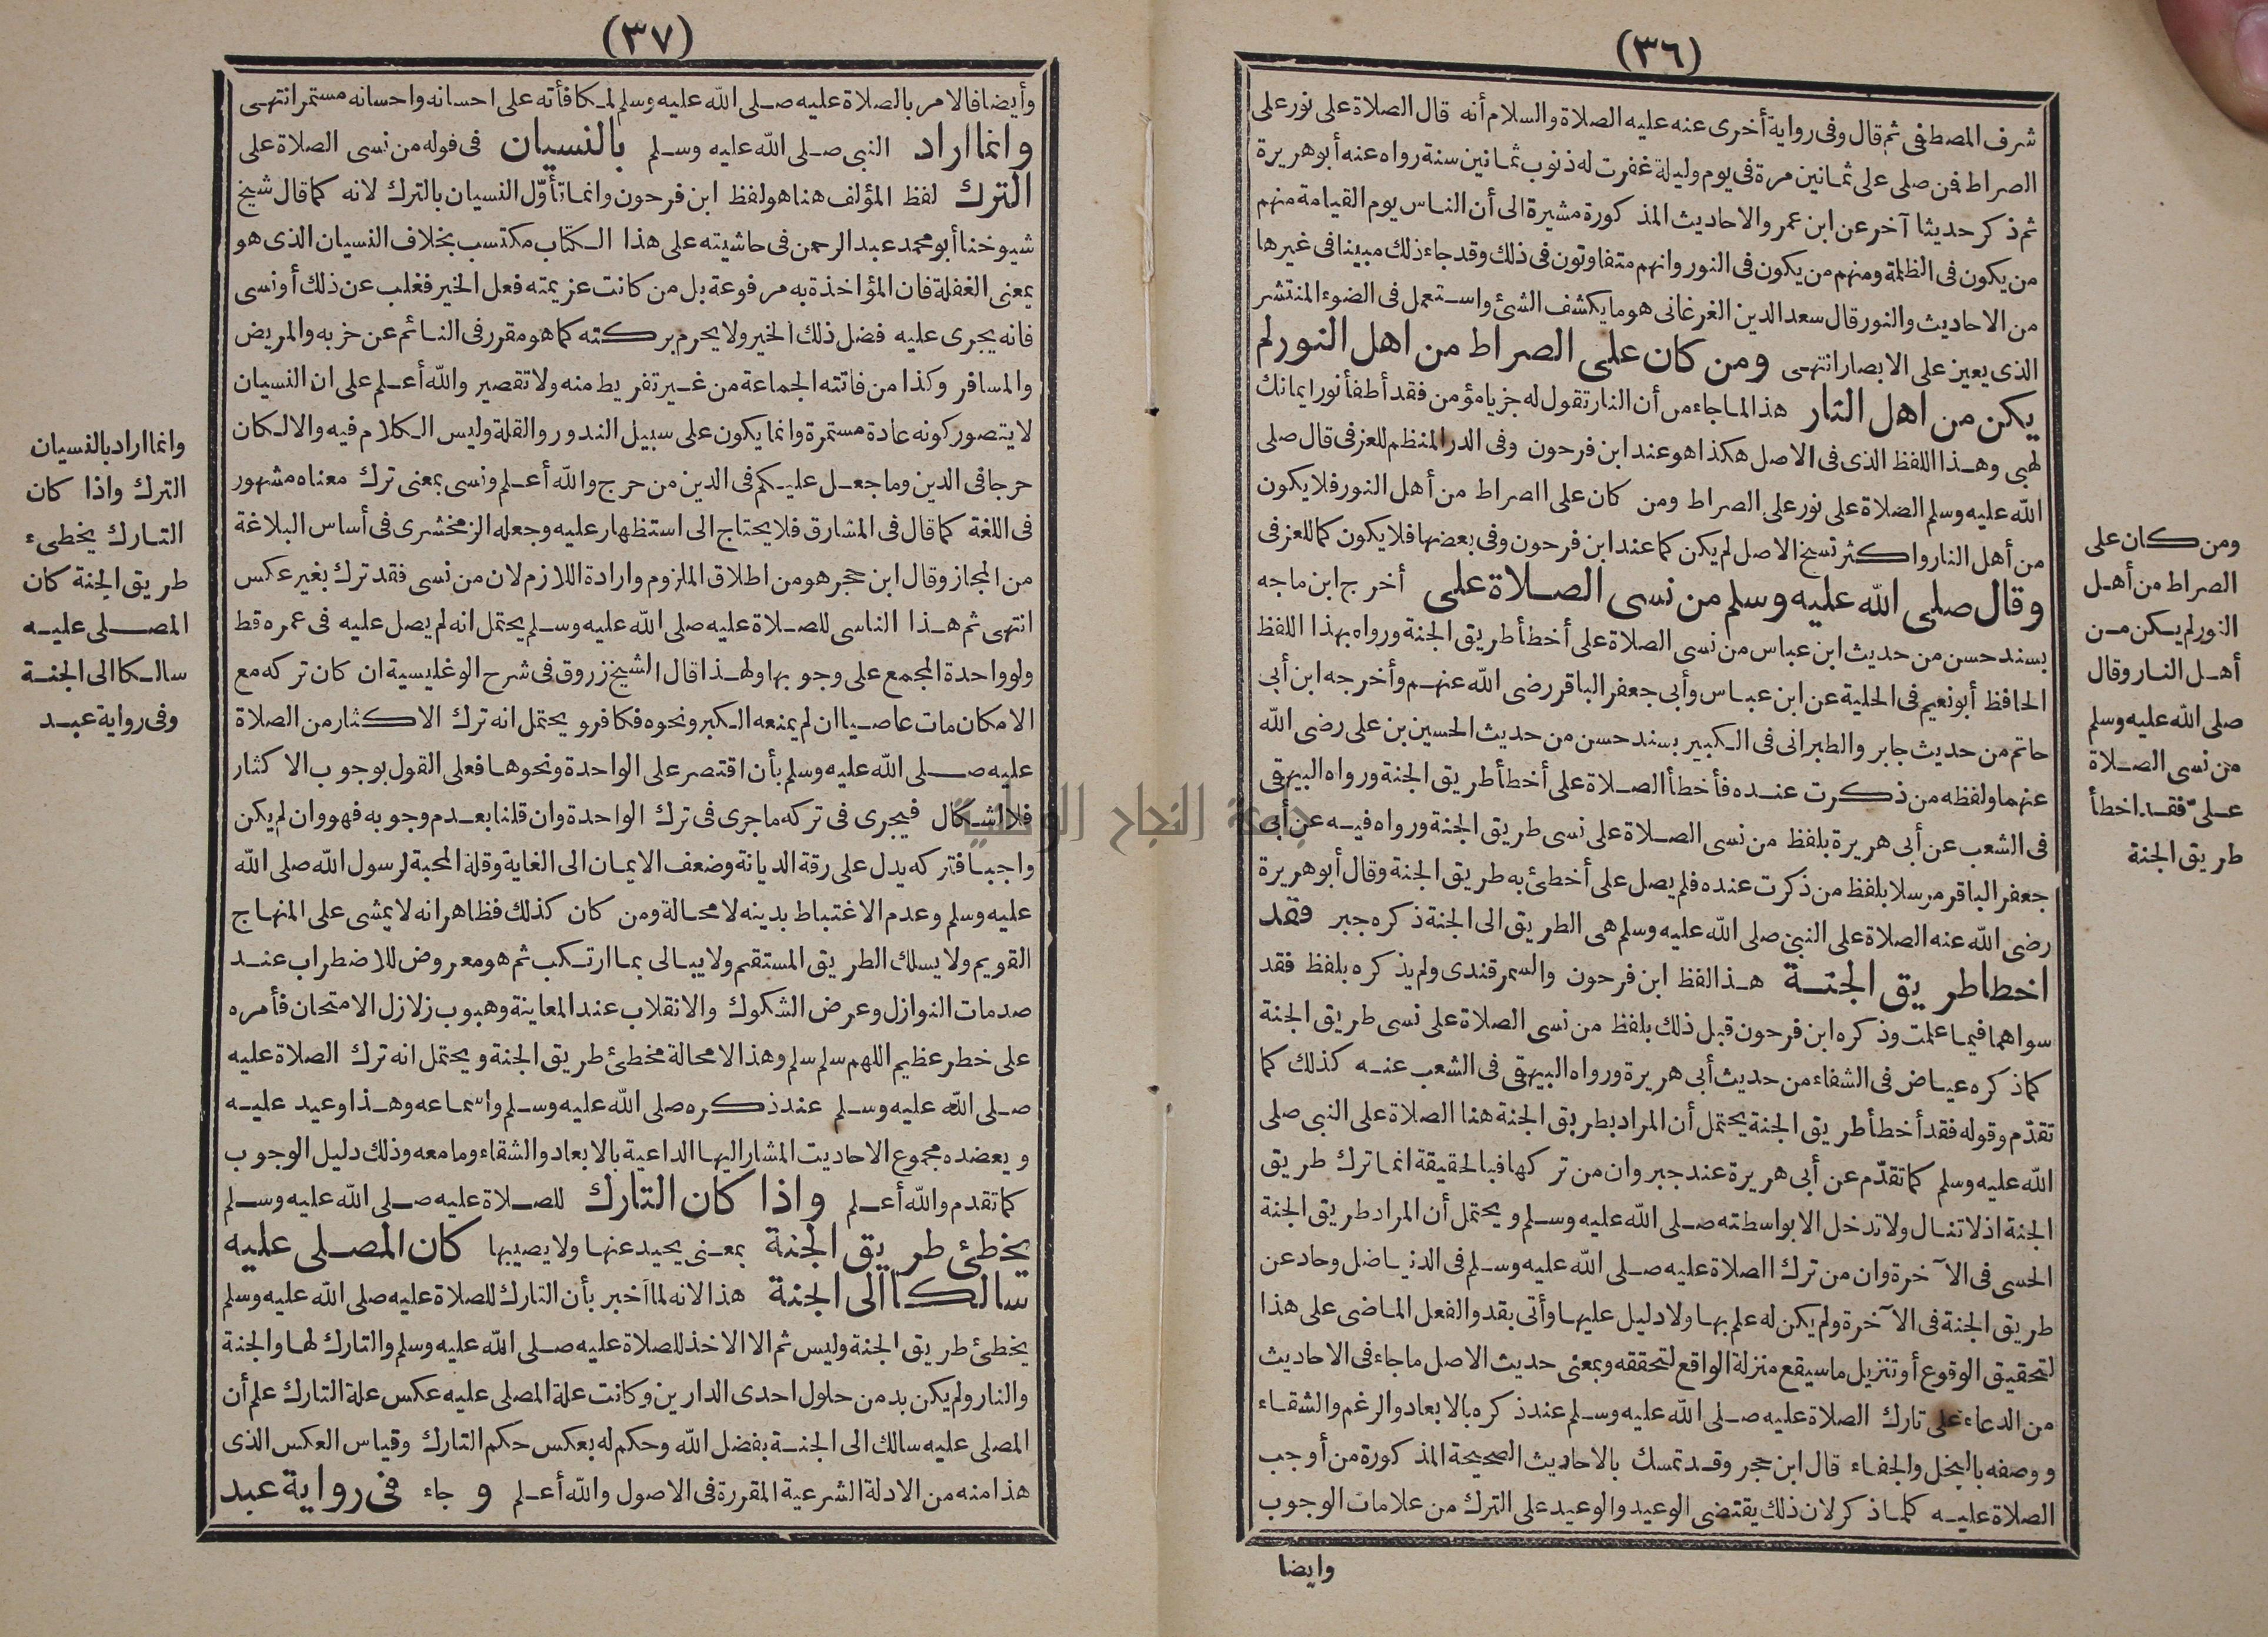 (٣٦)
شرف المصطفى ثم قال وفى رواية أخرى عنه عليه الصلاة والسلام أنه قال الصلاة على نور على
الصراط فمن صلى على ثمانين مرة فى يوم وليلة غفرت له ذنوب ثمانين سنة رواه عنه أبو هريرة
ثم ذكر حديثا آخر عن ابن عمر والاحاديث المذكورة مشيرة الى أن الناس يوم القيامة منهم
من يكون فى الظلمة ومنهم من يكون فى النور وانهم متفاوتون فى ذلك وقد جاء ذلك مبينا فى غيرها
من الاحاديث والنور قال سعد الدين الفرغانى هو ما يكشف الشئ واستعمل فى الضوء المنتشر
الذى يعين على الابصار انتهى ومن كان على الصراط من اهل النور لم
يكن من اهل النار هذا لما جاء من أن النار تقول له جز يا مؤمن فقد أطفأ نور ايمانك
لهبى وهذا اللفظ الذى فى الاصل هكذا هو عند ابن فرحون وفى الدر المنظم للعزفى قال صلى
الله عليه وسلم الصلاة على نور على الصراط ومن كان على الصراط من أهل النور فلا يكون
من أهل النار وأكثر نسخ الاصل لم يكن كما عند ابن فرحون وفى بعضها فلا يكون كما للعزفى
وقال صلى الله عليه وسلم من نسى الصلاة على أخرج ابن ماجه
بسند حسن من حديث ابن عباس من نسى الصلاة على أخطأ طريق الجنة ورواه بهذا اللفظ
الحافظ أبو نعيم فى الحلية عن ابن عباس وأبى جعفر الباقر رضى الله عنهم وأخرجه ابن أبى
حاتم من حديث جابر والطبرانى فى الكبير بسند حسن من حديث الحسين بن على رضى الله
عنهما ولفظه من ذكرت عنده فأخطأ الصلاة على أخطأ طريق الجنة ورواه البيهقى
فى الشعب عن أبى هريرة بلفظ من نسى الصلاة على نسى طريق الجنة ورواه فيه عن أبى
جعفر الباقر مرسلا بلفظ من ذكرت عنده فلم يصل على أخطئ به طريق الجنة وقال أبو هريرة
رضى الله عنه الصلاة على النبى صلى الله عليه وسلم هى الطريق الى الجنة ذكره جبر فقد
اخطا طريق الجنة هذا لفظ ابن فرحون والسمرقندى ولم يذكره بلفظ فقد
سواهما فيما علمت وذكره ابن فرحون قبل ذلك بلفظ من نسى الصلاة على نسى طريق الجنة
كما ذكره عياض فى الشفاء من حديث أبى هريرة ورواه البيهقى فى الشعب عنه كذلك كما
تقدّم وقوله فقد أخطأ طريق الجنة يحتمل أن المراد بطريق الجنة هنا الصلاة على النبى صلى
الله عليه وسلم كما تقدّم عن أبى هريرة عند جبر وان من تركها فبالحقيقة انما ترك طريق
الجنة اذ لا تنال ولا تدخل الا بواسطته صلى الله عليه وسلم ويحتمل أن المراد طريق الجنة
الحسى فى الآخرة وان من ترك الصلاة عليه صلى الله عليه وسلم فى الدنيا ضل وحاد عن
طريق الجنة فى الآخرة ولم يكن له علم بها ولا دليل عليها وأتى بقد والفعل الماضى على هذا
لتحقيق الوقوع أو تنزيل ما سيقع منزلة الواقع لتحققه وبمعنى حديث الاصل ما جاء فى الاحاديث
من الدعاء على تارك الصلاة عليه صلى الله عليه وسلم عند ذكره بالابعاد والرغم والشقاء
ووصفه بالبخل والجفاء قال ابن حجر وقد تمسك بالاحاديث الصحيحة المذكورة من أوجب
الصلاة عليه كلما ذكر لان ذلك يقتضى الوعيد والوعيد على الترك من علامات الوجوب
وايضا
ومن كان على
الصراط من أهل
النور لم يكن من
أهل النار وقال
صلى الله عليه وسلم
من نسى الصلاة
علىّ فقد اخطأ
طريق الجنة
(٣٧)
وأيضا فالامر بالصلاة عليه صلى الله عليه وسلم لمكافأته على احسانه واحسانه مستمر انتهى
وانما اراد النبى صلى الله عليه وسلم بالنسيان فى قوله من نسى الصلاة على
الترك لفظ المؤلف هنا هو لفظ ابن فرحون وانما تأوّل النسيان بالترك لانه كما قال شيخ
شيوخنا أبو محمد عبد الرحمن فى حاشيته على هذا الكتاب مكتسب بخلاف النسيان الذى هو
بمعنى الغفلة فان المؤاخذة به مرفوعة بل من كانت عزيمته فعل الخير فغلب عن ذلك أو نسى
فانه يجرى عليه فضل ذلك الخير ولا يحرم بركته كما هو مقرر فى النائم عن حزبه والمريض
والمسافر وكذا من فاتته الجماعة من غير تفريط منه ولا تقصير والله أعلم على ان النسيان
لا يتصور كونه عادة مستمرة وانما يكون على سبيل الندور والقلة وليس الكلام فيه والا لكان
حرجا فى الدين وما جعل عليكم فى الدين من حرج والله أعلم ونسى بمعنى ترك معناه مشهور
فى اللغة كما قال فى المشارق فلا يحتاج الى استظهار عليه وجعله الزمخشرى فى أساس البلاغة
من المجاز وقال ابن حجر هو من اطلاق الملزوم وارادة اللازم لان من نسى فقد ترك بغير عكس
انتهى ثم هذا الناسى للصلاة عليه صلى الله عليه وسلم يحتمل انه لم يصل عليه فى عمره قط
ولو واحدة المجمع على وجوبها ولهذا قال الشيخ زروق فى شرح الوغليسية ان كان تركه مع
الامكان مات عاصيا ان لم يمنعه الكبر ونحوه فكافر ويحتمل انه ترك الاكثار من الصلاة
عليه صلى الله عليه وسلم بأن اقتصر على الواحدة ونحوها فعلى القول بوجوب الاكثار
فلا اشكال فيجرى فى تركه ما جرى فى ترك الواحدة وان قلنا بعدم وجوبه فهو وان لم يكن
واجبا فتركه يدل على رقة الديانة وضعف الايمان الى الغاية وقلة المحبة لرسول الله صلى الله
عليه وسلم وعدم الاغتباط بدينه لا محالة ومن كان كذلك فظاهر انه لا يمشى على المنهاج
القويم ولا يسلك الطريق المستقيم ولا يبالى بما ارتكب ثم هو معروض للاضطراب عند
صدمات النوازل وعرض الشكوك والانقلاب عند المعاينة وهبوب زلازل الامتحان فأمره
على خطر عظيم اللهم سلم سلم وهذا لا محالة مخطئ طريق الجنة ويحتمل انه ترك الصلاة عليه
صلى الله عليه وسلم عند ذكره صلى الله عليه وسلم واسماعه وهذا وعيد عليه
ويعضده مجموع الاحاديث المشار اليها الداعية بالابعاد والشقاء وما معه وذلك دليل الوجوب
كما تقدم والله أعلم واذا كان التارك للصلاة عليه صلى الله عليه وسلم
يخطئ طريق الجنة بمعنى يحيد عنها ولا يصيبها كان المصلى عليه
سالكا الى الجنة هذا لانه لما أخبر بأن التارك للصلاة عليه صلى الله عليه وسلم
يخطئ طريق الجنة وليس ثم الا الاخذ للصلاة عليه صلى الله عليه وسلم والتارك لها والجنة
والنار ولم يكن بد من حلول احدى الدارين وكانت علة المصلى عليه عكس علة التارك علم أن
المصلى عليه سالك الى الجنة بفضل الله وحكم له بعكس حكم التارك وقياس العكس الذى
هذا منه من الادلة الشرعية المقررة فى الاصول والله أعلم و جاء فى رواية عبد
وانما اراد بالنسيان
الترك واذا كان
التارك يخطىء
طريق الجنة كان
المصلى عليه
سالكا الى الجنة
وفى رواية عبد
جامعة النجاح الوطنية